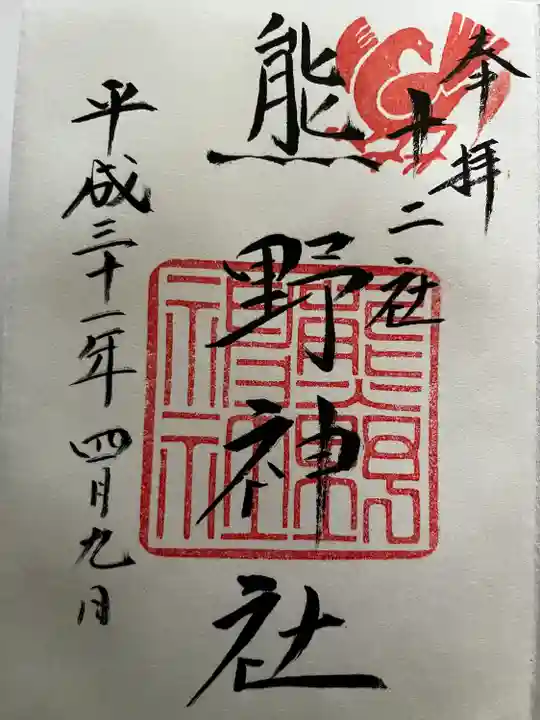 奉拝
十二社
熊野神社
平成三十一年四月九日